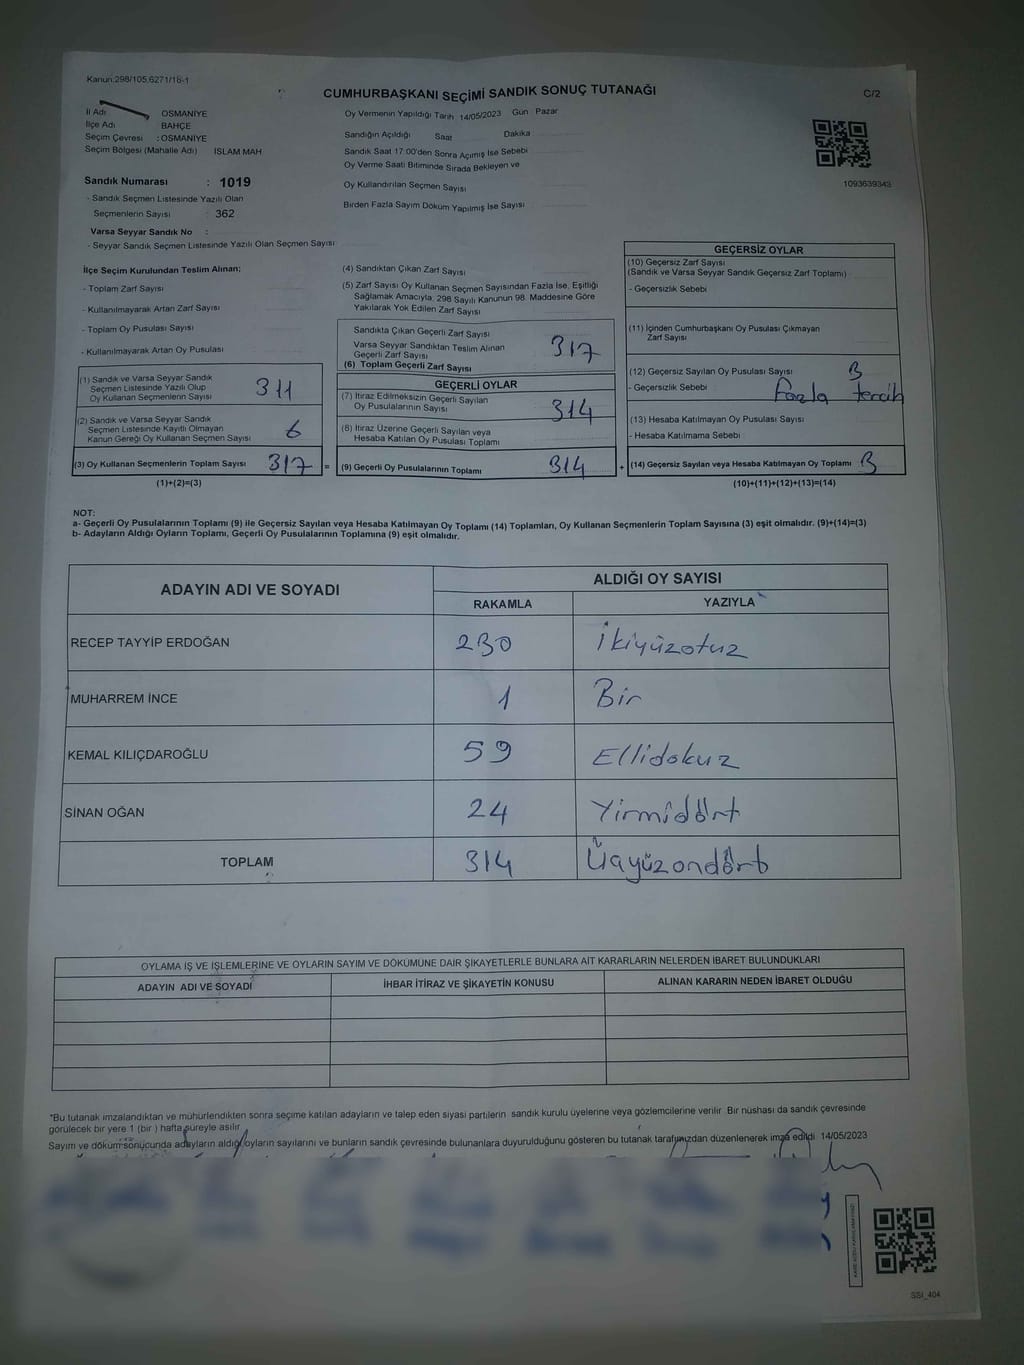 Kanun.298/105,6271/18-1
CUMHURBAŞKANI SEÇİMİ SANDIK SONUÇ TUTANAĞI
C/2
İl Adı OSMANİYE
İlçe Adı BAHÇE
Seçim Çevresi : OSMANİYE
Seçim Bölgesi (Mahalle Adı) İSLAM MAH
Oy Vermenin Yapıldığı Tarih 14/05/2023 Gün Pazar
Sandığın Açıldığı Saat Dakika
Sandık Saat 17:00'den Sonra Açılmış İse Sebebi
Oy Verme Saati Bitiminde Sırada Bekleyen ve
Oy Kullandırılan Seçmen Sayısı
Birden Fazla Sayım Döküm Yapılmış İse Sayısı
1093639343
Sandık Numarası : 1019
- Sandık Seçmen Listesinde Yazılı Olan
Seçmenlerin Sayısı : 362
Varsa Seyyar Sandık No :
- Seyyar Sandık Seçmen Listesinde Yazılı Olan Seçmen Sayısı
İlçe Seçim Kurulundan Teslim Alınan;
- Toplam Zarf Sayısı
- Kullanılmayarak Artan Zarf Sayısı
- Toplam Oy Pusulası Sayısı
- Kullanılmayarak Artan Oy Pusulası
(1) Sandık ve Varsa Seyyar Sandık
Seçmen Listesinde Yazılı Olup
Oy Kullanan Seçmenlerin Sayısı 311
(2) Sandık ve Varsa Seyyar Sandık
Seçmen Listesinde Kayıtlı Olmayan
Kanun Gereği Oy Kullanan Seçmen Sayısı 6
(3) Oy Kullanan Seçmenlerin Toplam Sayısı 317 =
(1)+(2)=(3)
(4) Sandıktan Çıkan Zarf Sayısı
(5) Zarf Sayısı Oy Kullanan Seçmen Sayısından Fazla İse, Eşitliği
Sağlamak Amacıyla, 298 Sayılı Kanunun 98. Maddesine Göre
Yakılarak Yok Edilen Zarf Sayısı
Sandıkta Çıkan Geçerli Zarf Sayısı
Varsa Seyyar Sandıktan Teslim Alınan
Geçerli Zarf Sayısı
(6) Toplam Geçerli Zarf Sayısı 317
GEÇERLİ OYLAR
(7) İtiraz Edilmeksizin Geçerli Sayılan
Oy Pusulalarının Sayısı 314
(8) İtiraz Üzerine Geçerli Sayılan veya
Hesaba Katılan Oy Pusulası Toplamı
(9) Geçerli Oy Pusulalarının Toplamı 314 +
GEÇERSİZ OYLAR
(10) Geçersiz Zarf Sayısı
(Sandık ve Varsa Seyyar Sandık Geçersiz Zarf Toplamı)
- Geçersizlik Sebebi
(11) İçinden Cumhurbaşkanı Oy Pusulası Çıkmayan
Zarf Sayısı
(12) Geçersiz Sayılan Oy Pusulası Sayısı 3
- Geçersizlik Sebebi Fazla tercih
(13) Hesaba Katılmayan Oy Pusulası Sayısı
- Hesaba Katılmama Sebebi
(14) Geçersiz Sayılan veya Hesaba Katılmayan Oy Toplamı 3
(10)+(11)+(12)+(13)=(14)
NOT:
a- Geçerli Oy Pusulalarının Toplamı (9) ile Geçersiz Sayılan veya Hesaba Katılmayan Oy Toplamı (14) Toplamları, Oy Kullanan Seçmenlerin Toplam Sayısına (3) eşit olmalıdır. (9)+(14)=(3)
b- Adayların Aldığı Oyların Toplamı, Geçerli Oy Pusulalarının Toplamına (9) eşit olmalıdır.
ADAYIN ADI VE SOYADI ALDIĞI OY SAYISI
RAKAMLA YAZIYLA
RECEP TAYYİP ERDOĞAN 230 İkiyüzotuz
MUHARREM İNCE 1 Bir
KEMAL KILIÇDAROĞLU 59 Ellidokuz
SİNAN OĞAN 24 Yirmidört
TOPLAM 314 Üçyüzondört
OYLAMA İŞ VE İŞLEMLERİNE VE OYLARIN SAYIM VE DÖKÜMÜNE DAİR ŞİKAYETLERLE BUNLARA AİT KARARLARIN NELERDEN İBARET BULUNDUKLARI
ADAYIN ADI VE SOYADI İHBAR İTİRAZ VE ŞİKAYETİN KONUSU ALINAN KARARIN NEDEN İBARET OLDUĞU
*Bu tutanak imzalandıktan ve mühürlendikten sonra seçime katılan adayların ve talep eden siyasi partilerin sandık kurulu üyelerine veya gözlemcilerine verilir. Bir nüshası da sandık çevresinde
görülecek bir yere 1 (bir) hafta süreyle asılır.
Sayım ve döküm sonucunda adayların aldığı oyların sayılarını ve bunların sandık çevresinde bulunanlara duyurulduğunu gösteren bu tutanak tarafımızdan düzenlenerek imza edildi. 14/05/2023
SSI_404